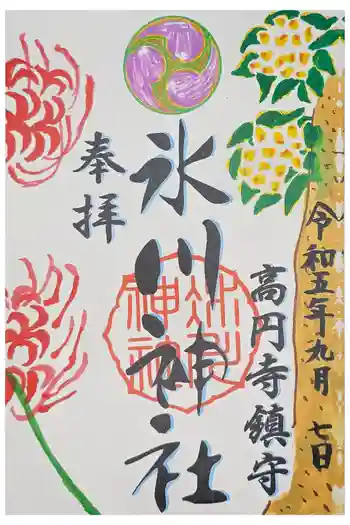 令和五年九月七日
高円寺鎮守
氷川神社
奉拝